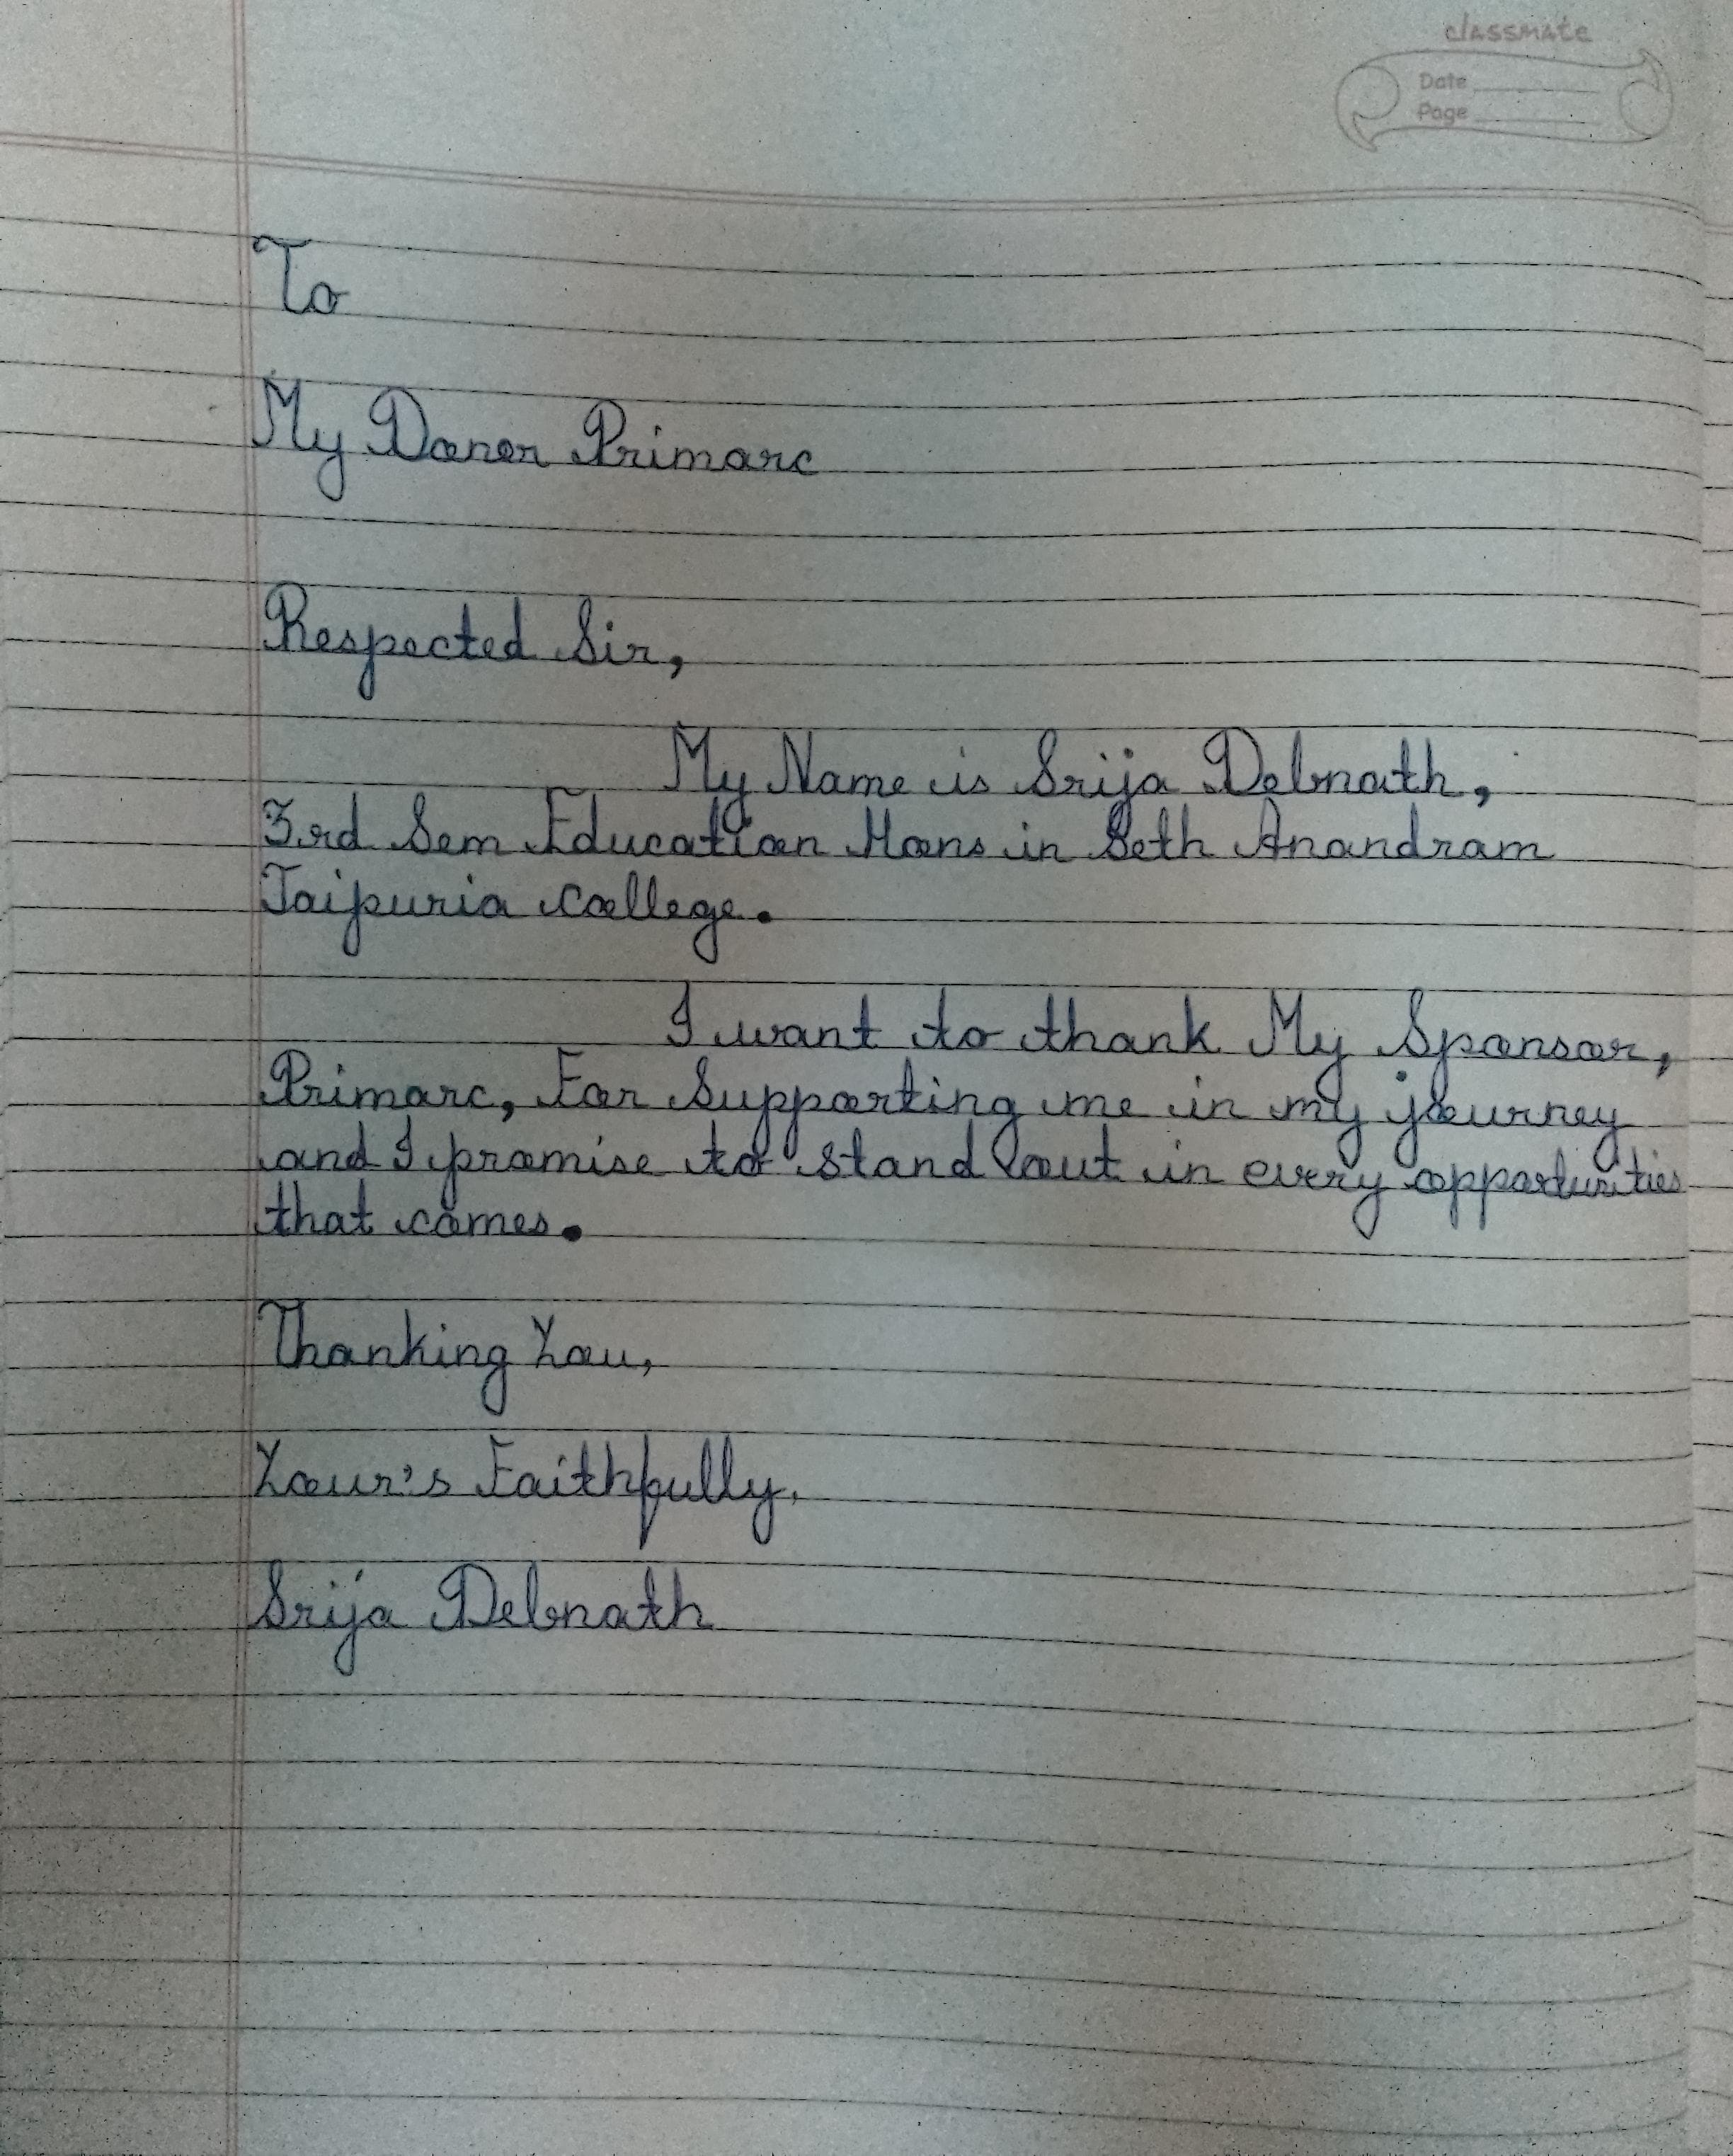 classmate
Date
Page
To
My Donor Primarc
Respected Sir,
My Name is Srija Debnath,
3rd Sem Education Hons in Seth Anandram
Jaipuria college.
I want to thank My Sponsor,
Primarc, For Supporting me in my journey
and I promise to stand out in every opportunities
that comes.
Thanking You,
Your's Faithfully,
Srija Debnath